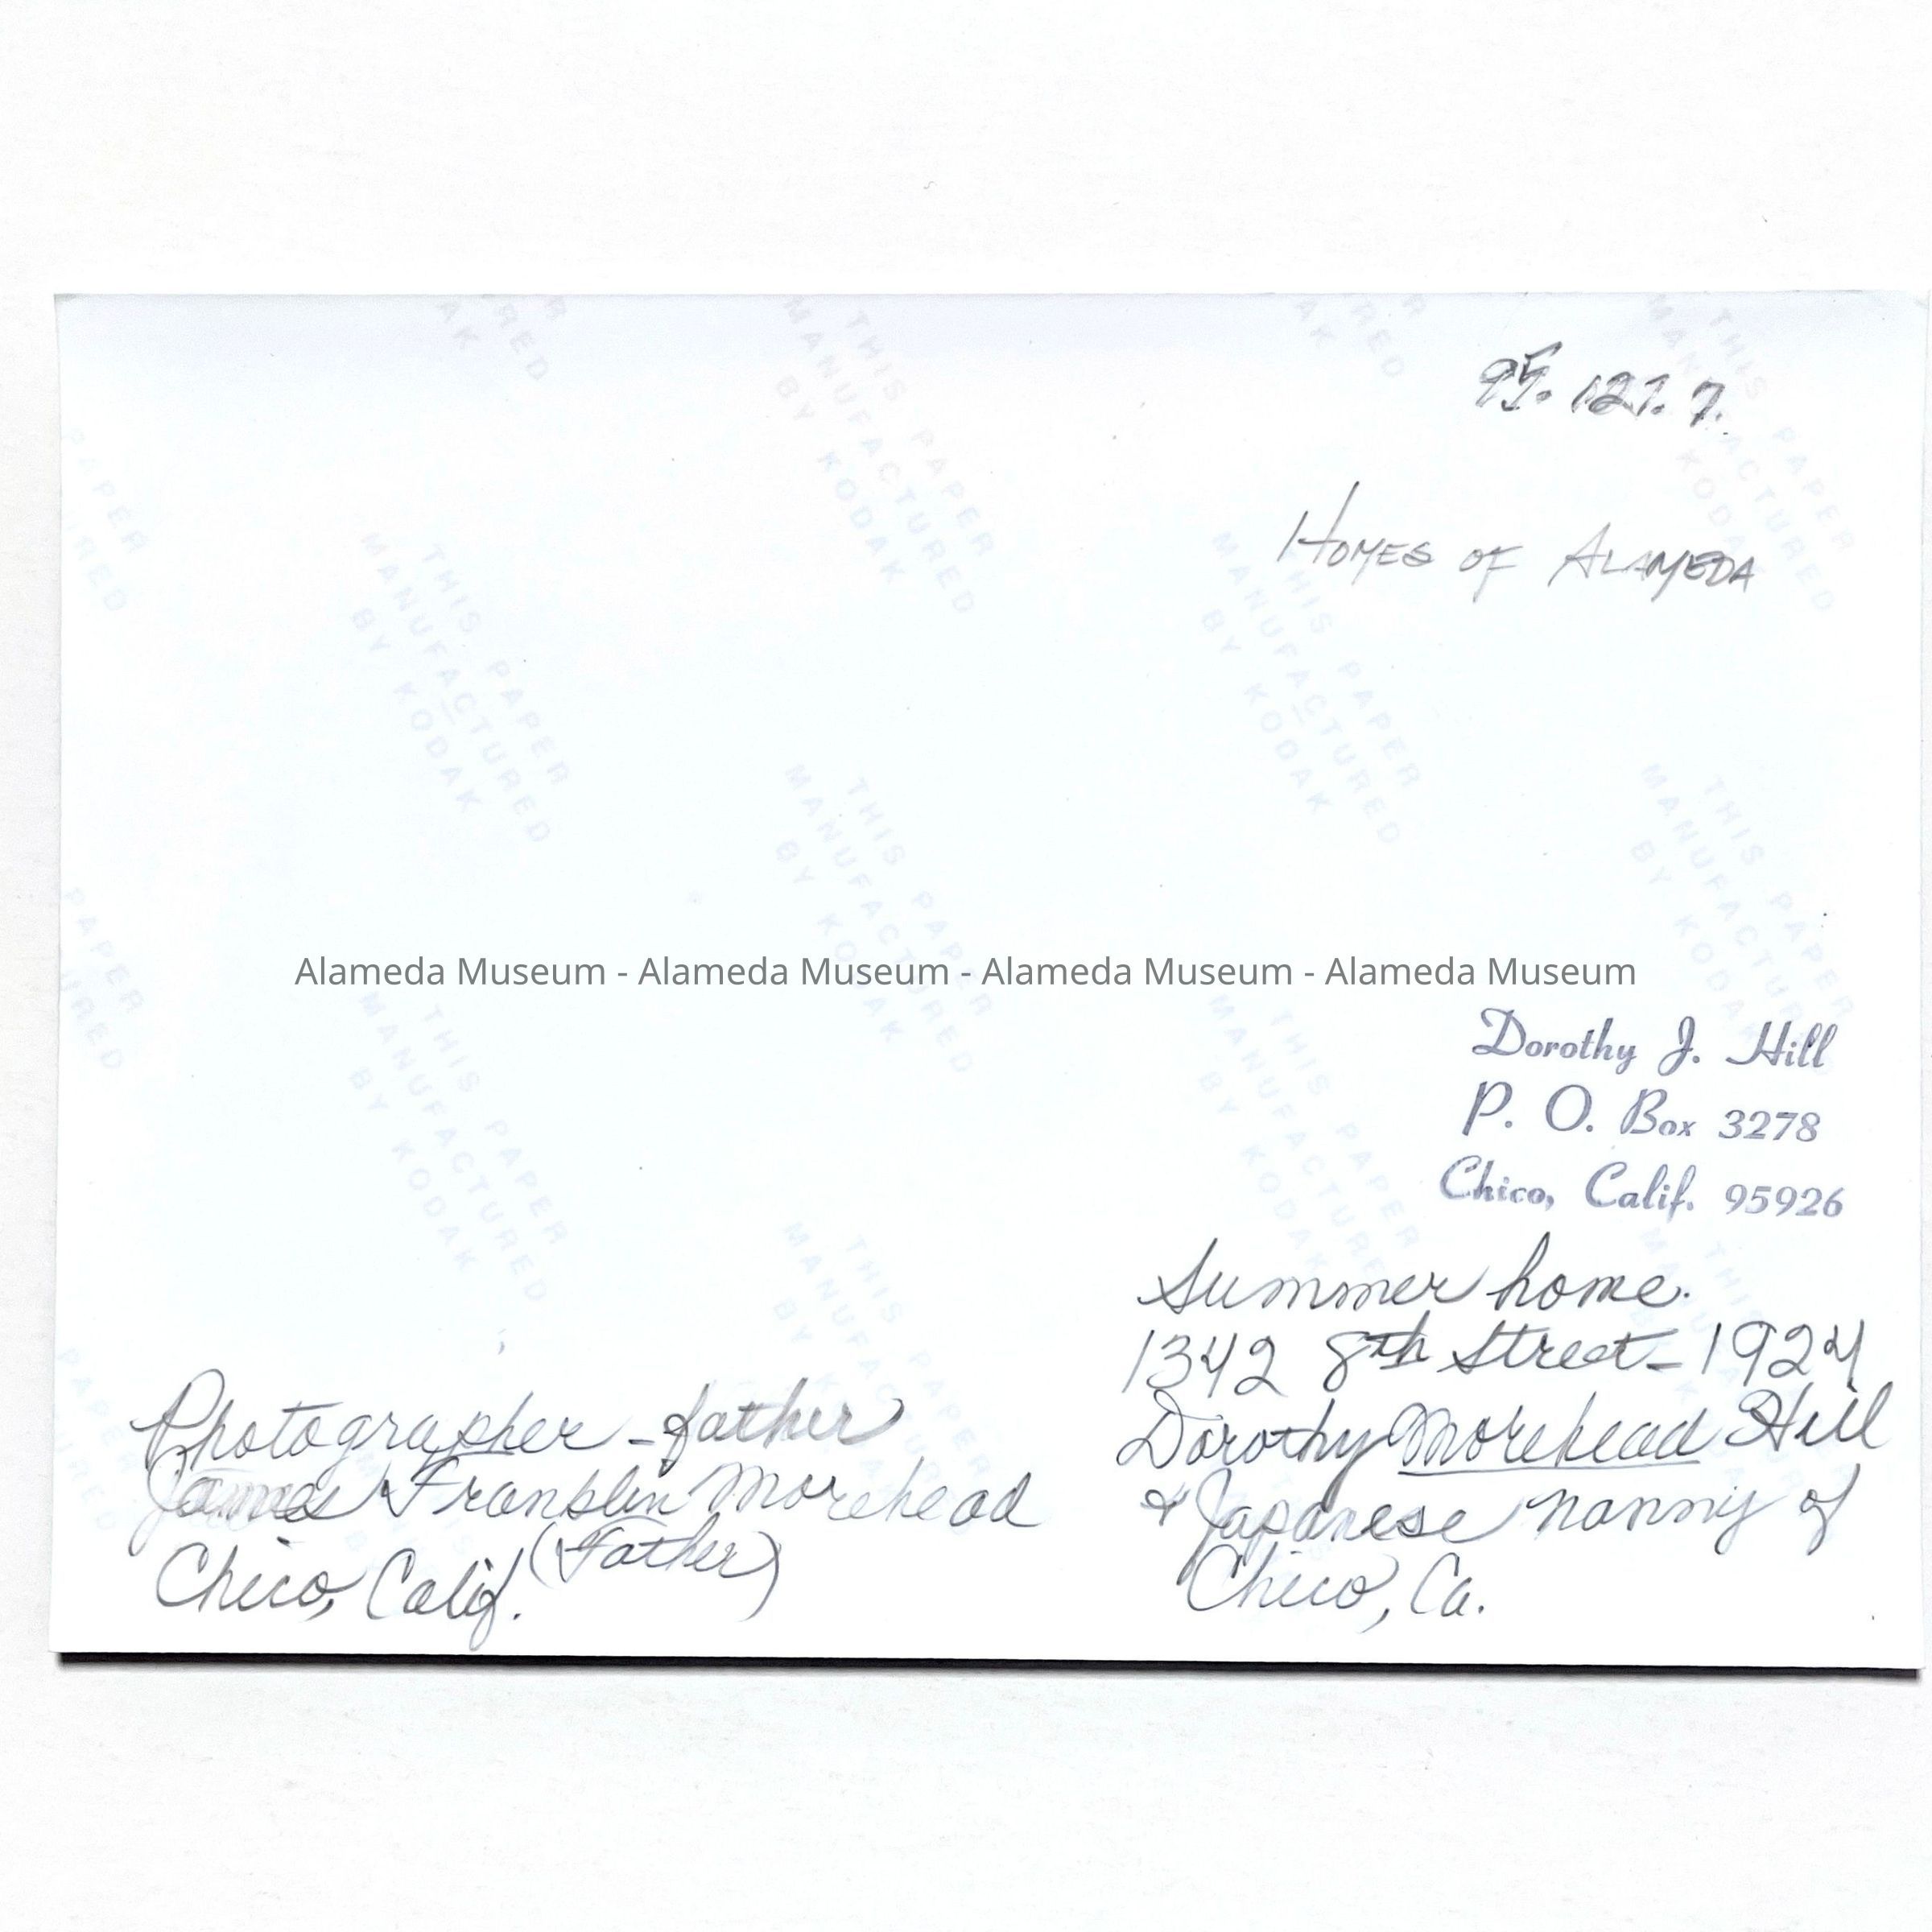 95. 127. 7.
HOMES OF ALAMEDA
Alameda Museum - Alameda Museum - Alameda Museum - Alameda Museum
Dorothy J. Hill
P. O. Box 3278
Chico, Calif. 95926
Summer home.
1342 8th Street - 1924
Dorothy Morehead Hill
& Japanese nanny of
Chico, Ca.
Photographer - father
James Franklin Morehead
(Father)
Chico, Calif.
THIS PAPER
MANUFACTURED
BY KODAK